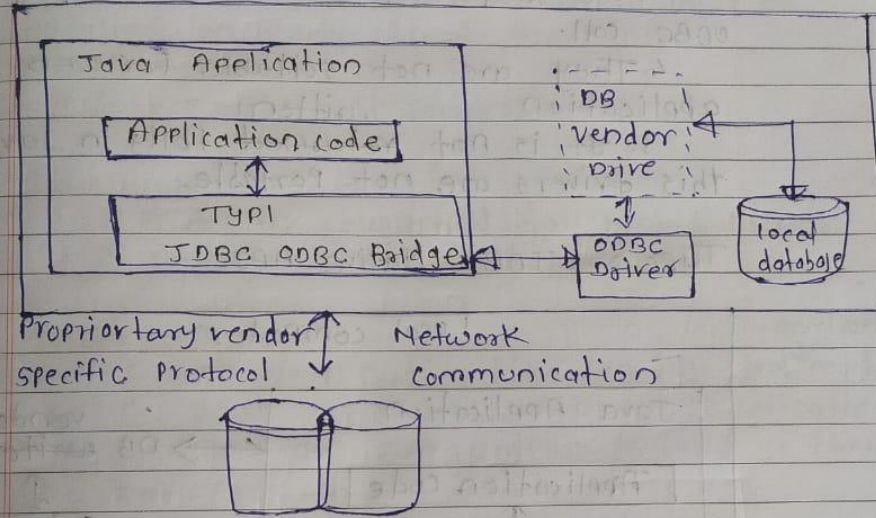 Java Application
Application code
TYP1
JDBC ODBC Bridge
DB
vendor
Drive
ODBC
Driver
local
database
Propriortary vendor
specific Protocol
Network
communication